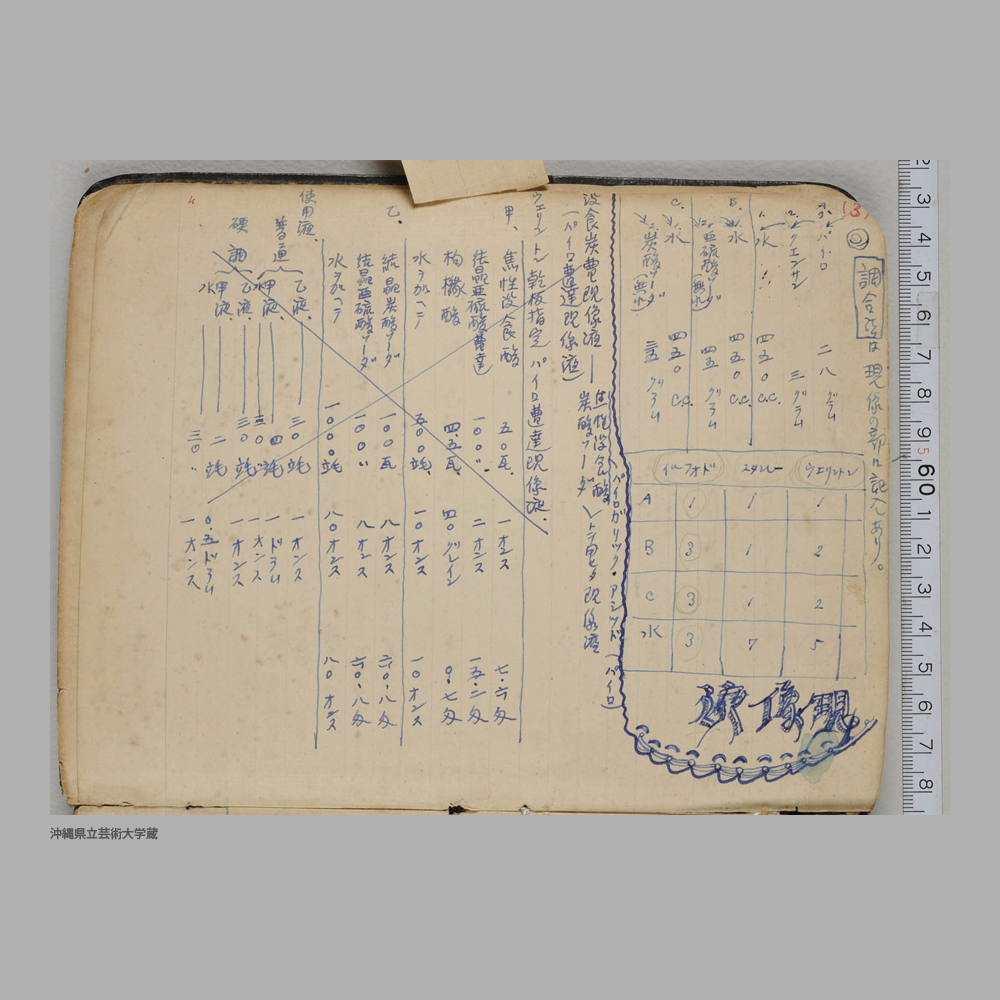 (3)
調合法は現像の部に記入あり。
A.
パイロ 二八 グラム
2. クエンサン 三 グラム
1. 水 四五〇 C.C.
B.
水 四五〇 C.C.
亜硫酸ソーダ(無水) 四五 グラム
C.
水 四五〇 C.C.
炭酸ソーダ(無水) グラム
ウエリントン イルフォド
A 1 1 1
B 2 1 3
C 2 1 3
水 5 7 3
現像液
没食炭曹現像液―焦性没食酸(パイロガリック・アシッド)(パイロ)
炭酸ソーダ
(パイロ曹達現像液)
ウエリントン乾板指定 パイロ曹達現像液.
甲、
焦性没食酸 五〇瓦. 一オンス 七.六匁
結晶亜硫酸曹達 一〇〇〃. 二オンス 一五.二匁
枸櫞酸 四.五瓦. 四〇グレイン 〇.七匁
水ヲ加ヘテ 五〇〇竓. 一〇オンス 一〇オンス
乙、
結晶炭酸ソーダ 一〇〇瓦 八オンス 六〇.八匁
結晶亜硫酸ソーダ 一〇〇〃 八オンス 六〇.八匁
水ヲ加ヘテ 一〇〇〇竓 八〇オンス 八〇オンス
使用液.
普通
乙液. 三〇竓 一オンス
甲液. 四竓 一ドラム
水 三〇竓 一オンス
硬調
乙液. 三〇竓 一オンス
甲液. 二竓 〇.五ドラム
水 三〇〃 一オンス
4
2 3 4 5 6 7 8 9 60 1 2 3 4 5 6 7 8
95
沖縄県立芸術大学蔵